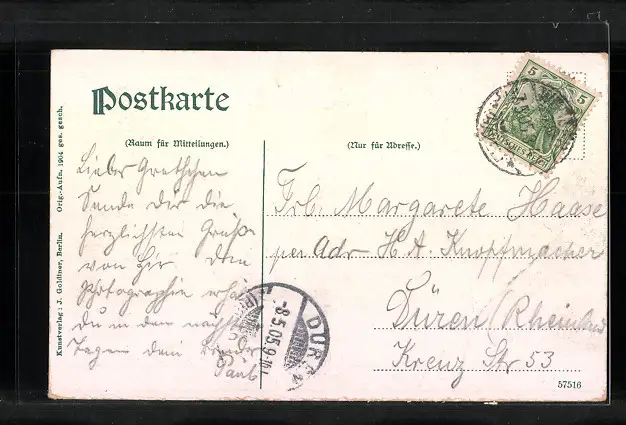 Postkarte
(Raum für Mitteilungen.)
(Nur für Adresse.)
Orig.-Aufn. 1904 ges. gesch.
Kunstverlag: J. Goldiner, Berlin.
Liebes Grethchen
Sende dir die
herzlichsten Grüße
von hier
Photographie
Du in den nächsten
Tagen dein Bruder
Paul
Frl. Margarete Haase
per Adr H. A. Knopfmacher
Düren (Rheinland
Kreuz Str 53
5 5
DEUTSCHES REICH
-8.5.05.9-
DÜREN
57516